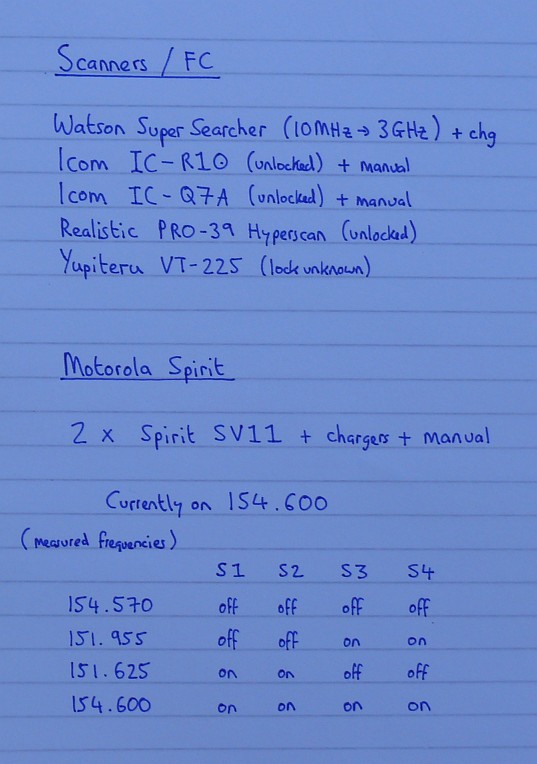 Scanners / FC
Watson Super Searcher (10MHz → 3GHz) + chg
Icom IC-R10 (unlocked) + manual
Icom IC-Q7A (unlocked) + manual
Realistic PRO-39 Hyperscan (unlocked)
Yupiteru VT-225 (lock unknown)
Motorola Spirit
2 x Spirit SV11 + chargers + manual
Currently on 154.600
(measured frequencies)
S1 S2 S3 S4
154.570 off off off off
151.955 off off on on
151.625 on on off off
154.600 on on on on